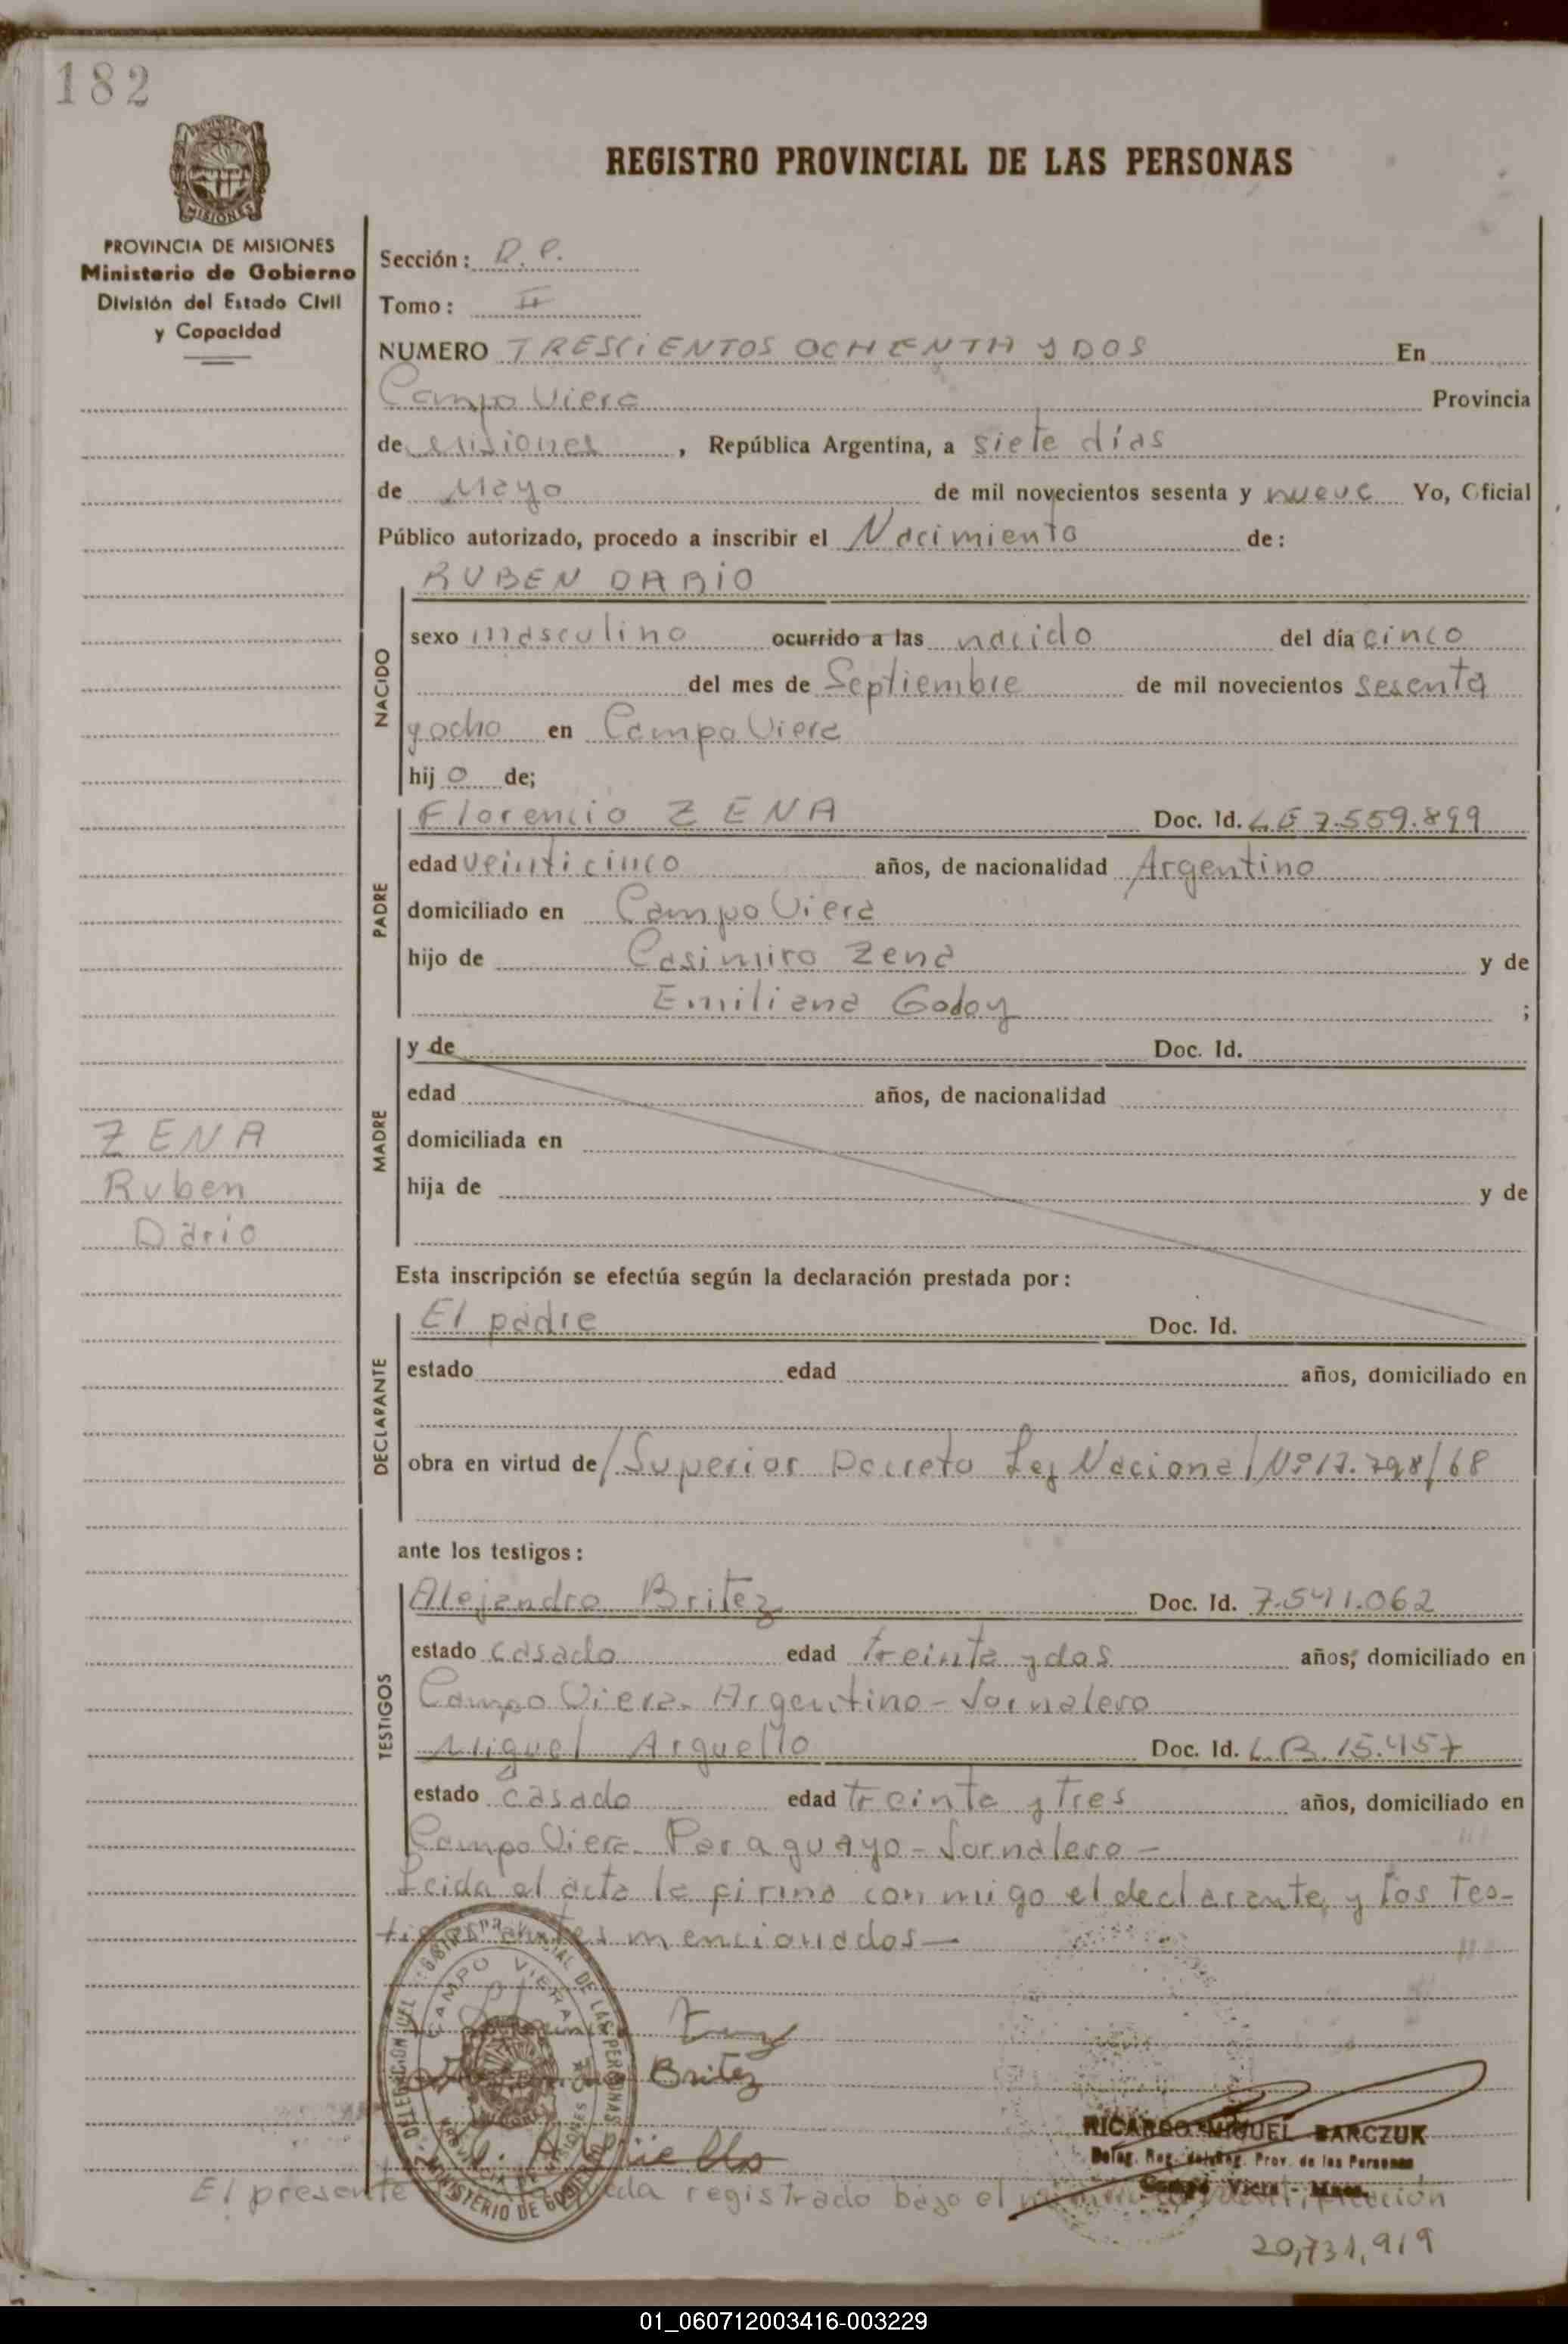 182
REGISTRO PROVINCIAL DE LAS PERSONAS
MISIONES
PROVINCIA DE MISIONES
Ministerio de Gobierno
División del Estado Civil
y Capacidad
Sección: D. P.
Tomo: II
NUMERO TRESCIENTOS OCHENTA y DOS En
Campo Viera Provincia
de Misiones, República Argentina, a siete días
de Mayo de mil novecientos sesenta y nueve Yo, Oficial
Público autorizado, procedo a inscribir el Nacimiento de:
RUBEN DARIO
NACIDO
sexo masculino ocurrido a las nacido del día cinco
del mes de Septiembre de mil novecientos sesenta
y ocho en Campo Viera
hij o de;
PADRE
Florencio ZENA Doc. Id. LE 7.559.899
edad veinticinco años, de nacionalidad Argentino
domiciliado en Campo Viera
hijo de Casimiro Zena y de
Emiliana Godoy ;
MADRE
y de Doc. Id.
edad años, de nacionalidad
domiciliada en
hija de y de
ZENA
Ruben
Dario
Esta inscripción se efectúa según la declaración prestada por:
DECLARANTE
El padre Doc. Id.
estado edad años, domiciliado en
obra en virtud de/Superior Decreto Ley Nacional Nº 17.798/68
ante los testigos:
TESTIGOS
Alejandro Britez Doc. Id. 7.541.062
estado casado edad treinta y dos años, domiciliado en
Campo Viera- Argentino - Jornalero
Miguel Arguello Doc. Id. L.B. 15.457
estado casado edad treinta y tres años, domiciliado en
Campo Viera- Paraguayo - Jornalero -
Leida el acta la firma con migo el declarante y los Tes-
tigos antes mencionados-
CAMPO VIERA
MINISTERIO DE GOBIERNO
Britez
Arguello
RICARDO MIGUEL BARCZUK
Deleg. Reg. del Reg. Prov. de las Personas
Campo Viera - Mnes.
El presente queda registrado bajo el
20,731,919
01_060712003416-003229